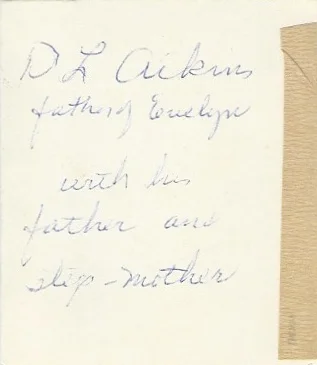 D L Aikins
father of Evelyn
with his
father and
step-mother